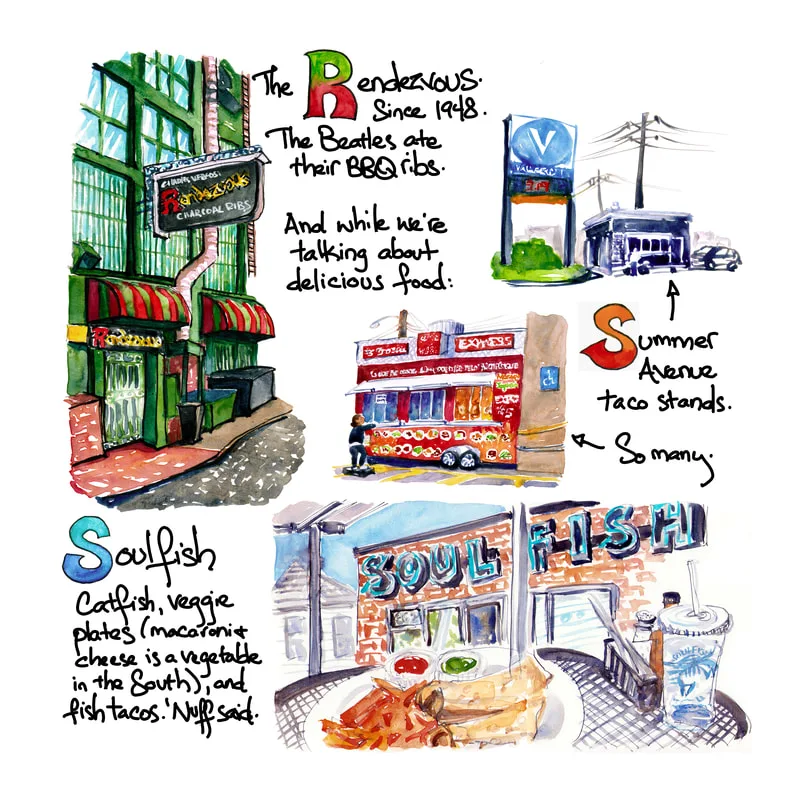 The Rendezvous.
Since 1948.
The Beatles ate
their BBQ ribs.
And while we're
talking about
delicious food:
Rendezvous
CHARCOAL RIBS
Rendezvous
V
EXPRESS
Summer
Avenue
taco stands.
So many.
Soulfish
Catfish, veggie
plates (macaroni &
cheese is a vegetable
in the South), and
fish tacos. 'Nuff said.
SOUL FISH